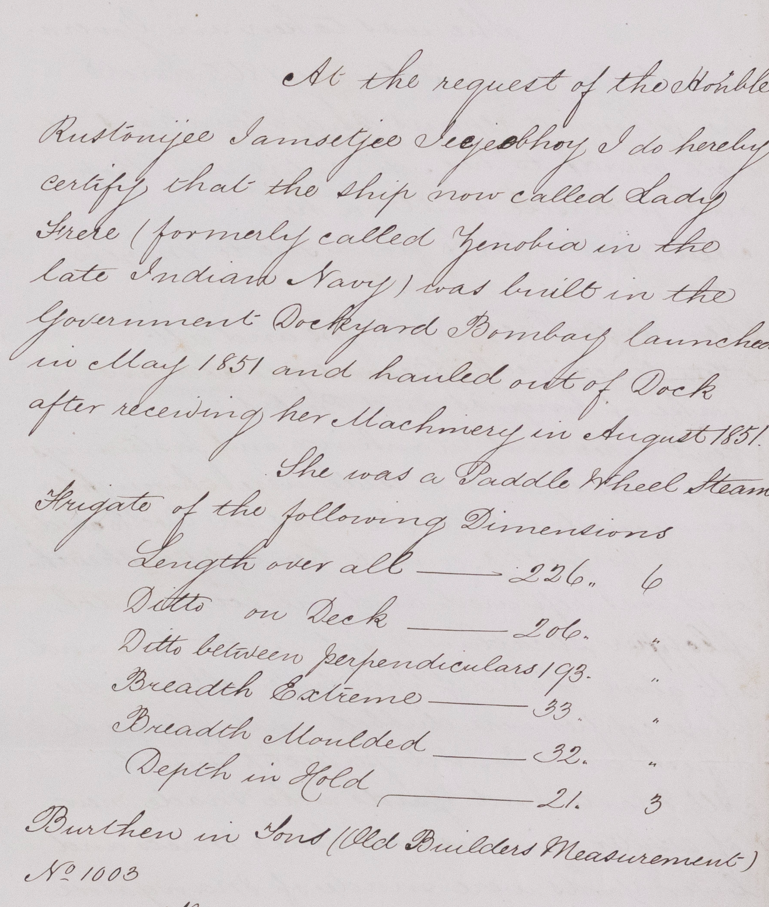 At the request of the Honble
Rustonijee Jamsetjee Jeejeebhoy I do hereby
certify that the ship now called Lady
Frere (formerly called Zenobia in the
late Indian Navy) was built in the
Government Dockyard Bombay launched
in May 1851 and hauled out of Dock
after receiving her Machinery in August 1851.
She was a Paddle Wheel Steam
Frigate of the following Dimensions
Length over all —— 226 „ 6
Ditto on Deck —— 206. „
Ditto between perpendiculars 193. „
Breadth Extreme —— 33. „
Breadth Moulded —— 32. „
Depth in Hold —— 21. 3
Burthen in Tons (Old Builders Measurement)
No 1003